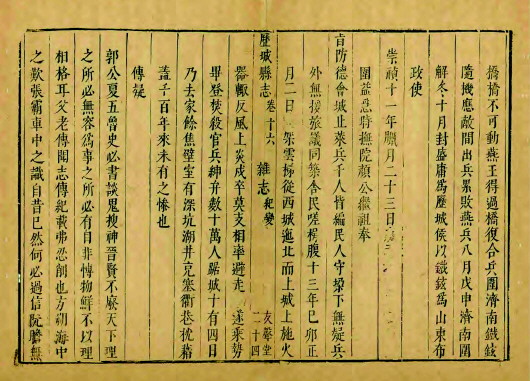 橋橋不可動燕王得過橋復合兵圍濟南鐵鉉
隨機應敵間出兵累敗燕兵八月戊申濟南圍
解冬十月封盛庸為歷城侯以鐵鉉為山東布
政使
崇禎十一年臘月二十三日
圍益急時撫院顏公繼祖奉
旨防德會城止萊兵千人皆編民人守垜下無疑兵
外無援旅議同築舍民嗟枵腹十三年己卯正
月二日 架雲梯從西城迤北而上城上施火
歷城縣志 卷十六 雜志 紀變 友聲堂 二十四
器輙反風上炎戍卒莫支相率避走 遂乘勢
畢登焚殺官兵紳弁數十萬人踞城十有四日
乃去家餘焦壁室有深坑湖井充塞衢巷枕藉
蓋千百年來未有之慘也
傳疑
郭公夏五魯史必書談鬼搜神晉賢不廢天下理
之所必無容為事之所必有自非博物鮮不以理
相格耳父老傳聞志傳紀載弗忍削也方朔海中
之歎張霸車中之識自昔已然何必過信阮瞻無